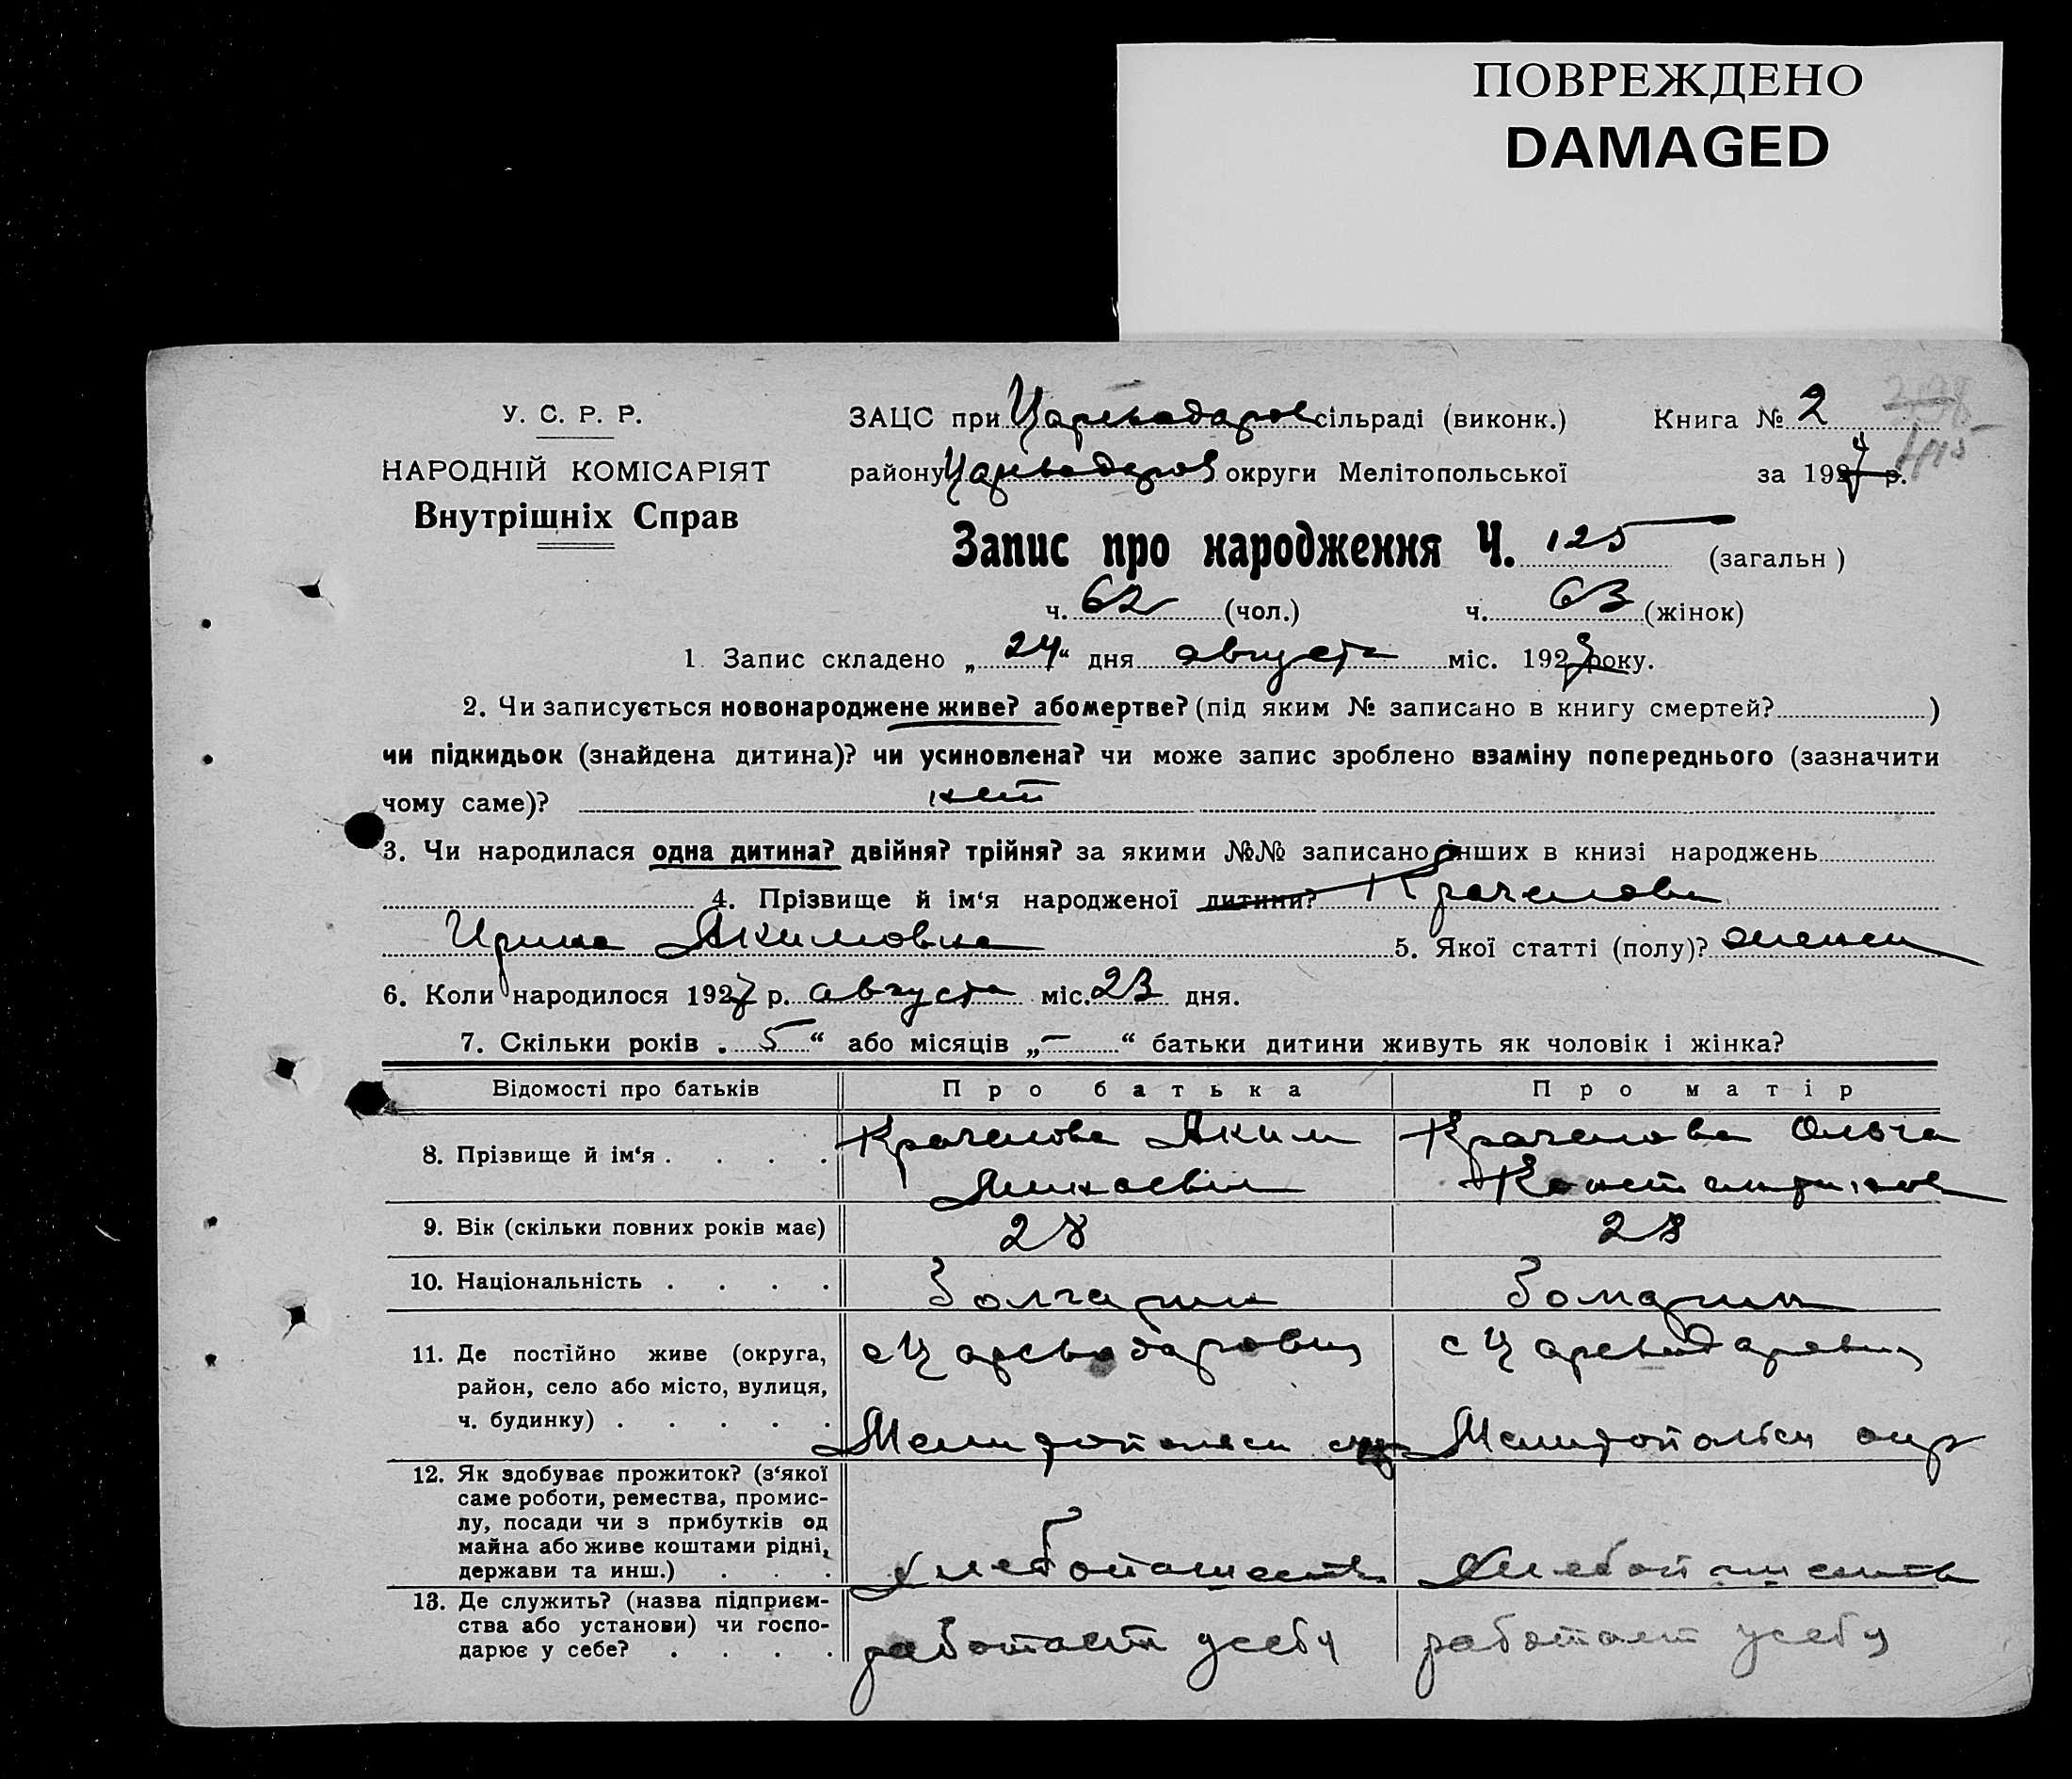 ПОВРЕЖДЕНО
DAMAGED
У. С. Р. Р.
НАРОДНІЙ КОМІСАРІЯТ
Внутрішніх Справ
ЗАЦС при Царевадаров сільраді (виконк.) Книга № 2
району Царевадаров округи Мелітопольської за 1927 р.
Запис про народження Ч. 125 (загальн)
ч. 62 (чол.) ч. 63 (жінок)
1. Запис складено „ 24 “ дня августа міс. 1927 року.
2. Чи записується новонароджене живе? або мертве? (під яким № записано в книгу смертей? )
чи підкидьок (знайдена дитина)? чи усиновлена? чи може запис зроблено взаміну попереднього (зазначити
чому саме)? нет
3. Чи народилася одна дитина? двійня? трійня? за якими №№ записано інших в книзі народжень
4. Прізвище й ім‘я народженої дитини?
Ирина Якимовна 5. Якої статті (полу)? женск
6. Коли народилося 1927 р. августа міс. 23 дня.
7. Скільки років „ 5 “ або місяців „ — “ батьки дитини живуть як чоловік і жінка?
Відомості про батьків Про батька Про матір
8. Прізвище й ім‘я . . . . Яким Ольга
9. Вік (скільки повних років має) 28 28
10. Національність . . . . Болгарин Болгарин
11. Де постійно живе (округа,
район, село або місто, вулиця,
ч. будинку) . . . . . Мелитопольск окр Мелитопольск окр
12. Як здобуває прожиток? (з‘якої
саме роботи, ремества, промис-
лу, посади чи з прибутків од
майна або живе коштами рідні,
держави та инш.) . . . хлебопашеств хлебопашеств
13. Де служить? (назва підприєм-
ства або установи) чи госпо-
дарює у себе? . . . . работает у себя работает у себя